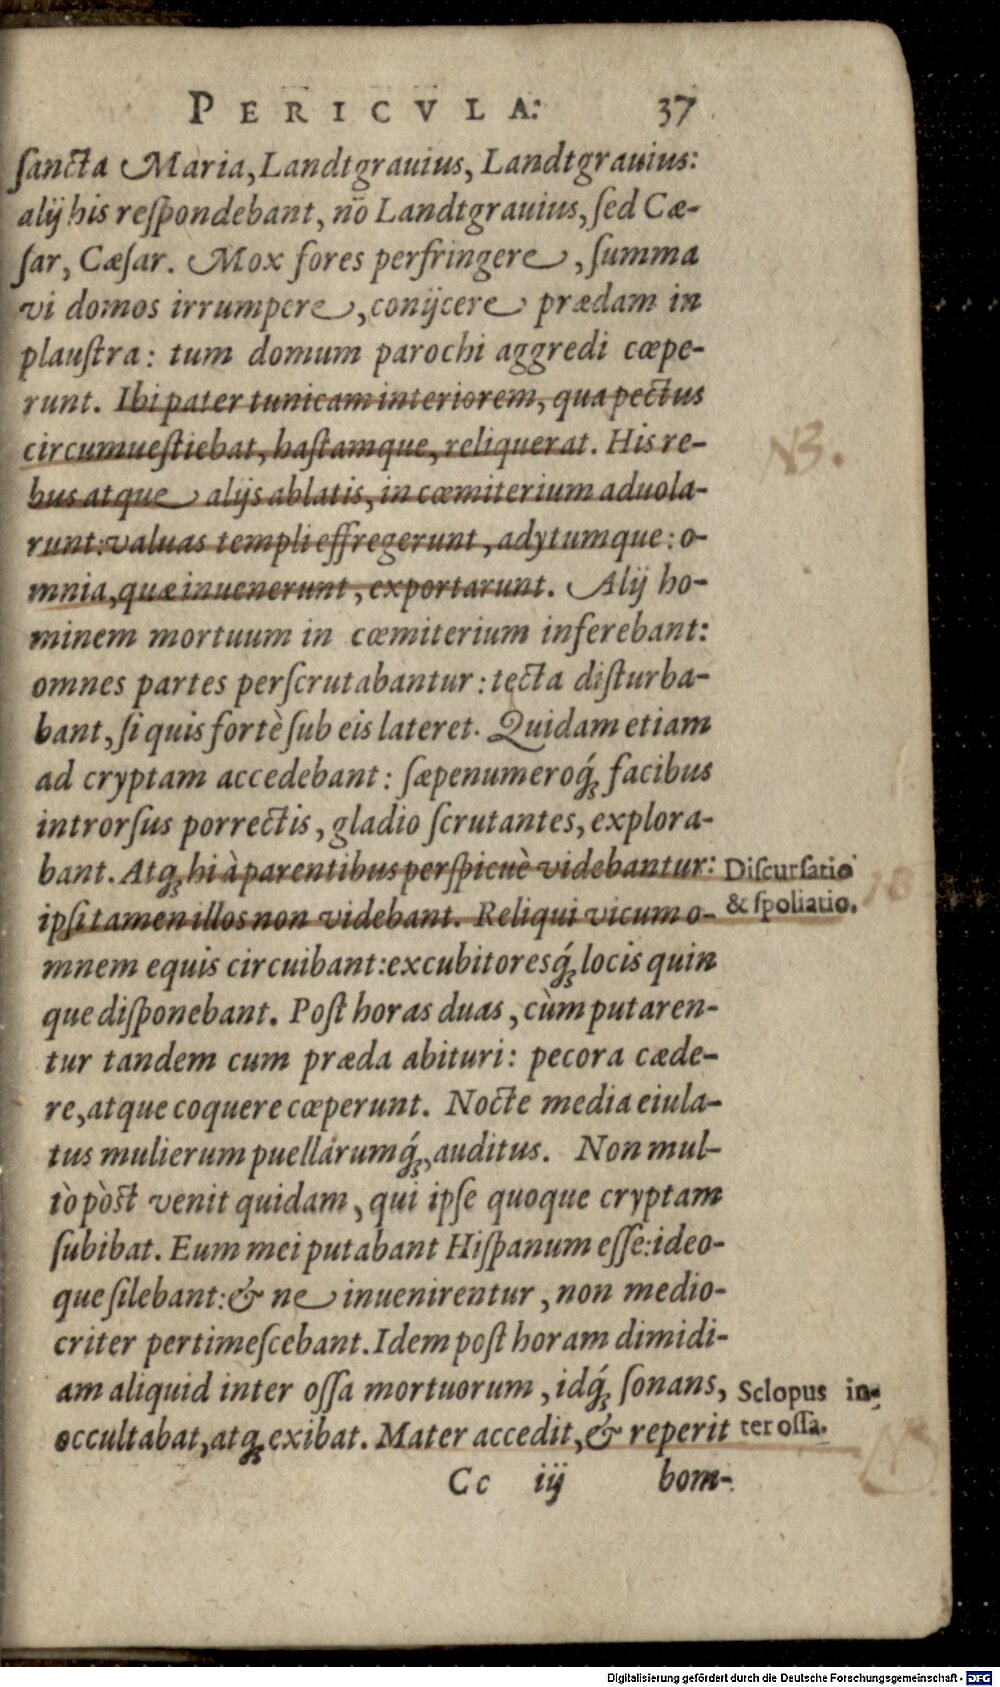 PERICVLA: 37
ſancta Maria, Landtgrauius, Landtgrauius:
alij his reſpondebant, nō Landtgrauius, ſed Cæ-
ſar, Cæſar. Mox fores perfringere, ſumma
vi domos irrumpere, conijcere prædam in
plauſtra: tum domum parochi aggredi cœpe-
runt. Ibi pater tunicam interiorem, qua pectus
circumueſtiebat, haſtamque, reliquerat. His re-
bus atque alijs ablatis, in cœmiterium aduola-
runt: valuas templi effregerunt, adytumque: o-
mnia, quæ inuenerunt, exportarunt. Alij ho-
minem mortuum in cœmiterium inferebant:
omnes partes perſcrutabantur: tecta diſturba-
bant, ſi quis fortè ſub eis lateret. Quidam etiam
ad cryptam accedebant: ſæpenumeroq́; facibus
introrſus porrectis, gladio ſcrutantes, explora-
bant. Atq; hi à parentibus perſpicuè videbantur:
ipſi tamen illos non videbant. Reliqui vicum o-
mnem equis circuibant: excubitoresq́; locis quin
que diſponebant. Poſt horas duas, cùm putaren-
tur tandem cum præda abituri: pecora cæde-
re, atque coquere cœperunt. Nocte media eiula-
tus mulierum puellarumq́;, auditus. Non mul-
tò pòst venit quidam, qui ipſe quoque cryptam
ſubibat. Eum mei putabant Hiſpanum eſſe: ideo-
que ſilebant: & ne inuenirentur, non medio-
criter pertimeſcebant. Idem poſt horam dimidi-
am aliquid inter oſſa mortuorum, idq́; ſonans,
occultabat, atq; exibat. Mater accedit, & reperit
Cc iij bom-
NB.
Diſcurſatio
& ſpoliatio.
Sclopus in-
ter oſſa.
Digitalisierung gefördert durch die Deutsche Forschungsgemeinschaft - DFG